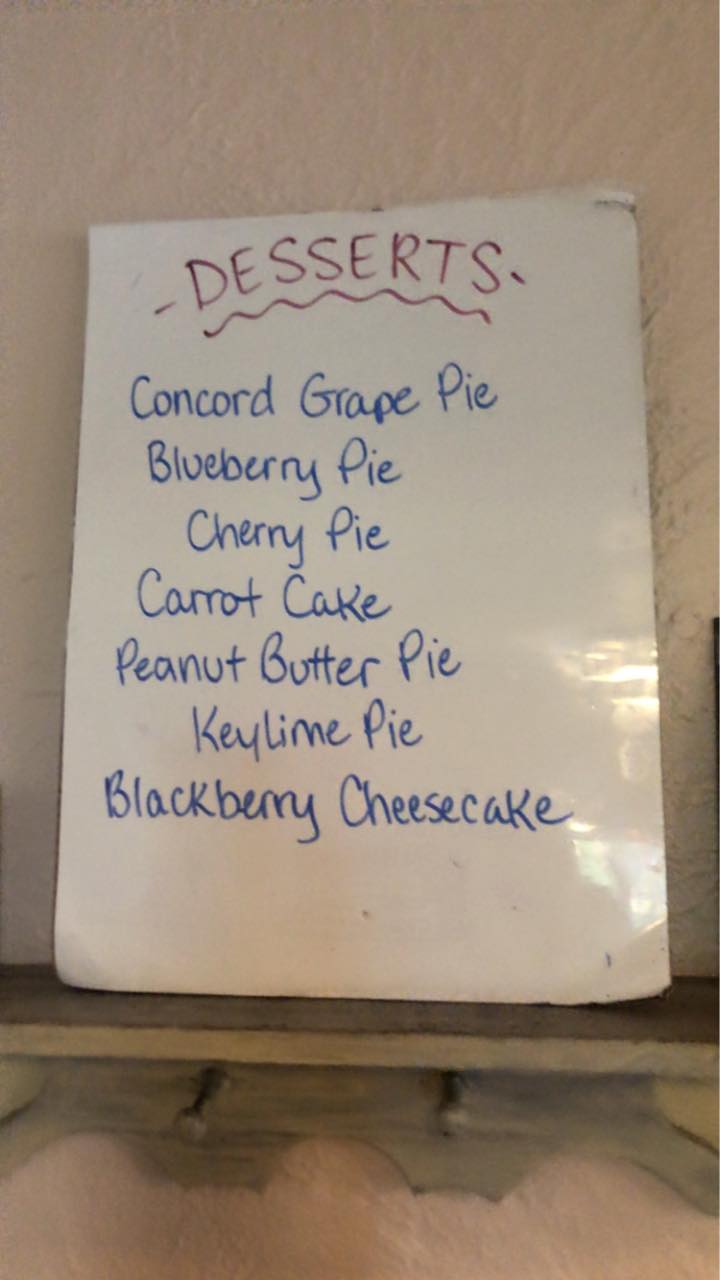 - DESSERTS -
Concord Grape Pie
Blueberry Pie
Cherry Pie
Carrot Cake
Peanut Butter Pie
Keylime Pie
Blackberry Cheesecake